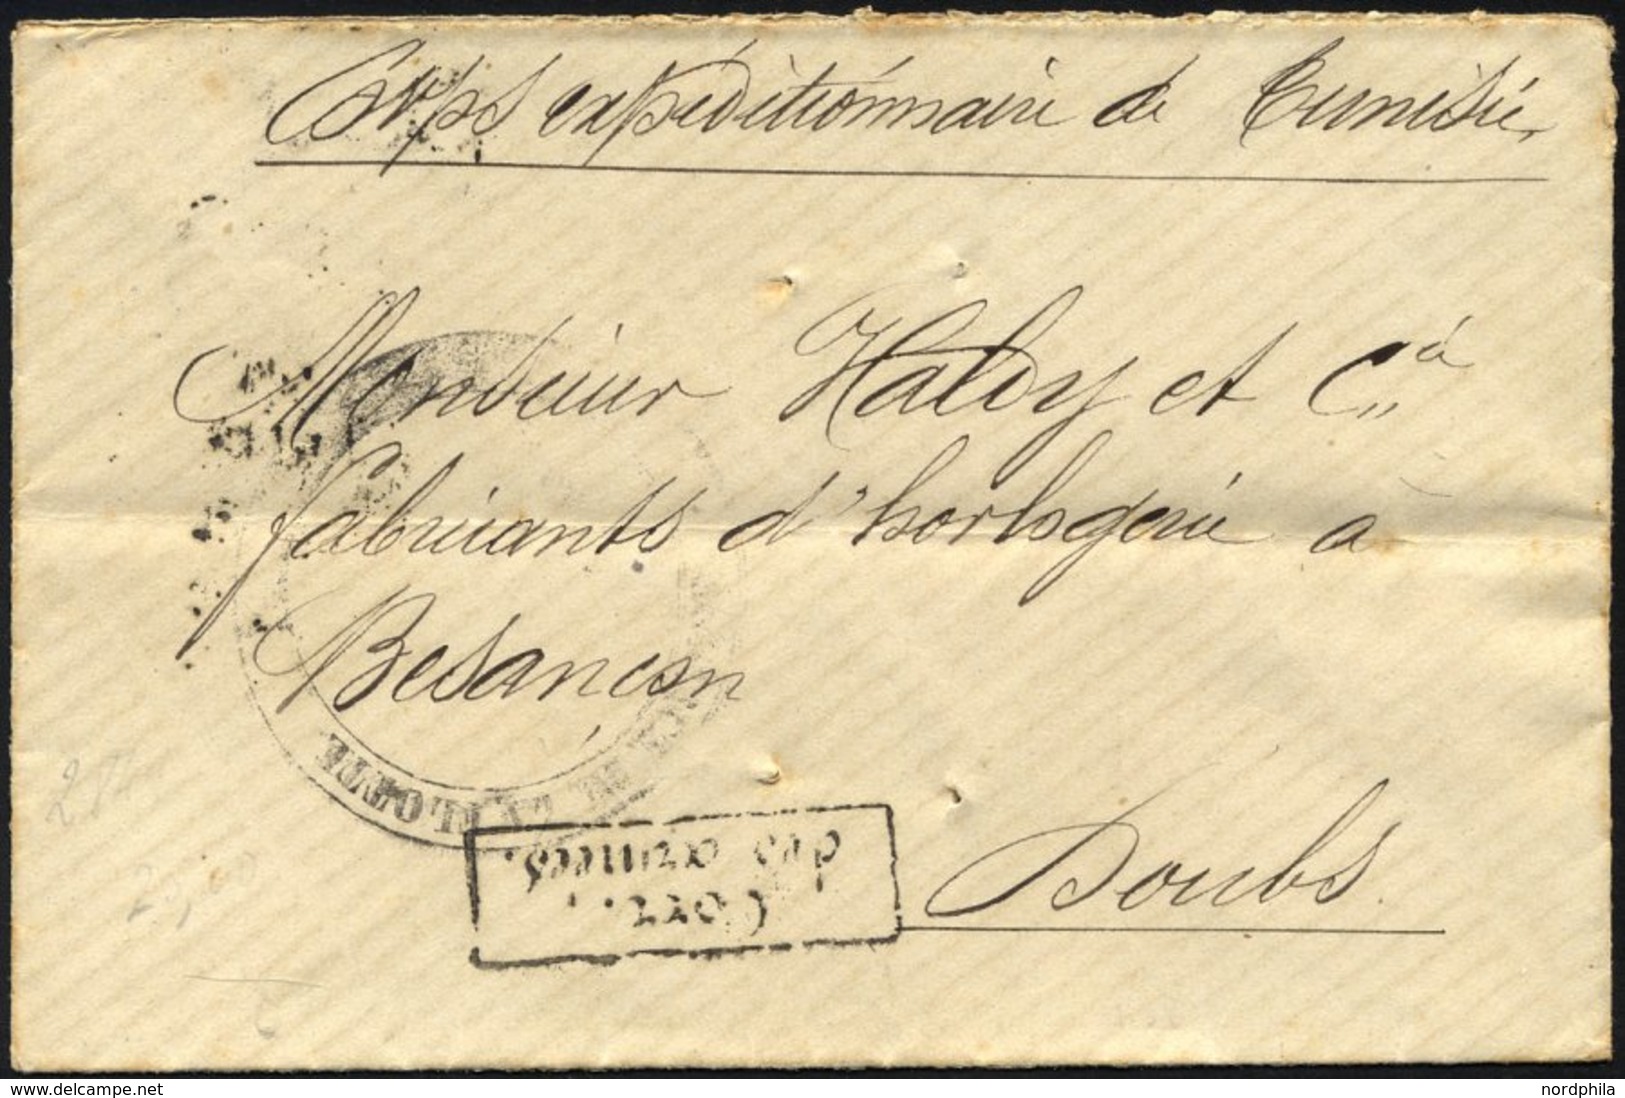 Corps expéditionnaire de Tunisie
Monsieur Haldy et Cie
fabricants d'horlogerie à
Besançon
Doubs
Corr.
des armées.
DE LA FLOTTE
254
20,00
delcampe.net
nordphila